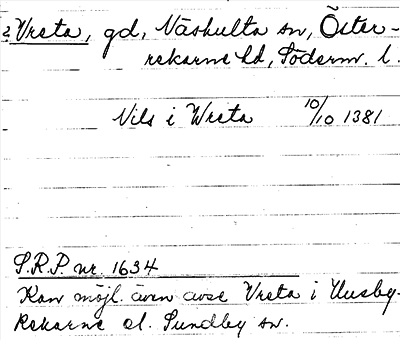 2. Vreta, gd, Näshulta sn, Öster-
rekarne hd, Söderm. l.
Nils i Wreta 10/10 1381
S.R.P. nr. 1634
Kan möjl. även avse Vreta i Husby-
Rekarne el. Sundby sn.